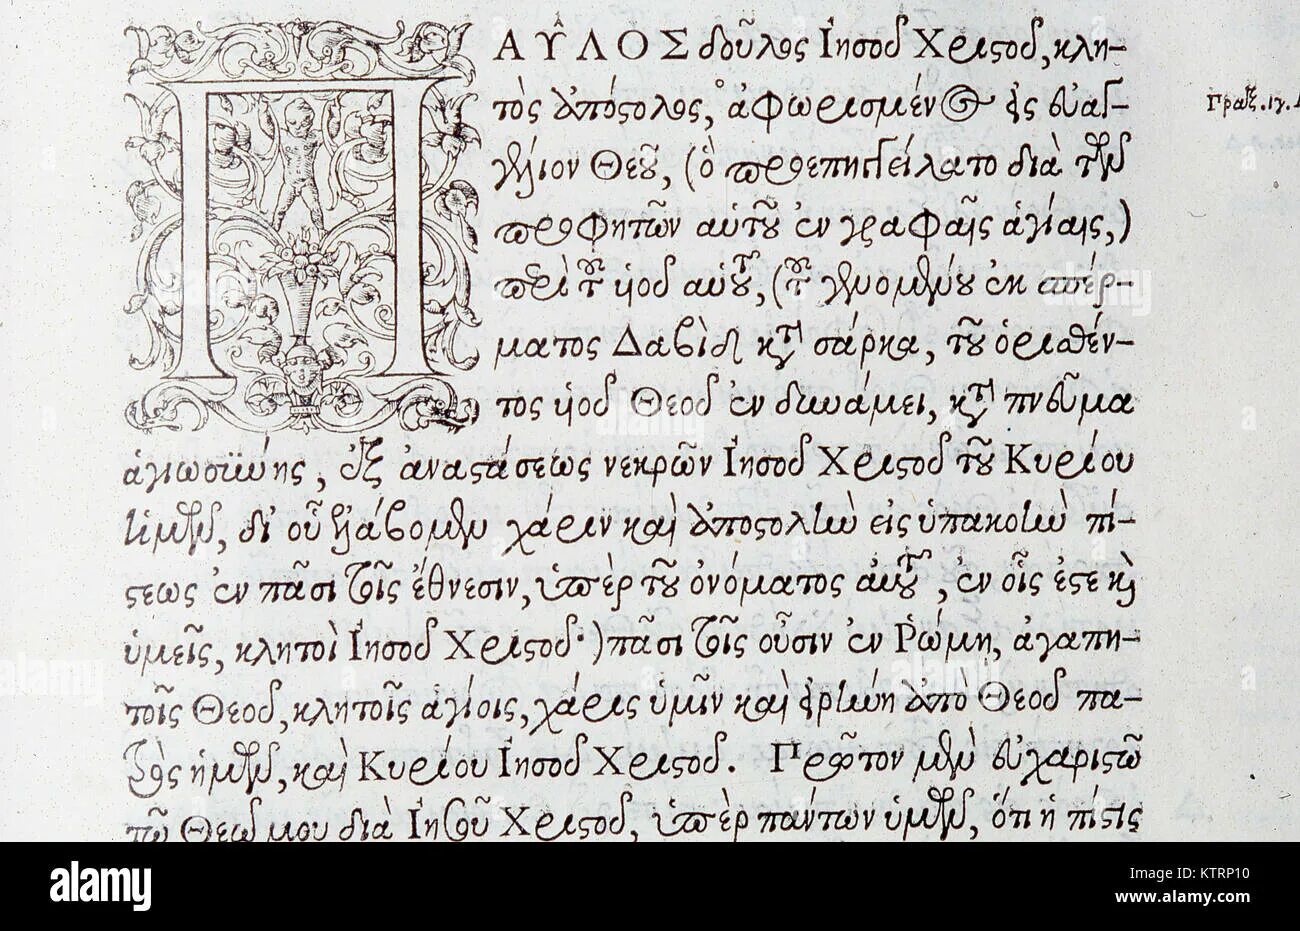 ΠΑῦΛΟΣ δοῦλος Ἰησοῦ Χριστοῦ, κλη-
τὸς ἀπόστολος, ἀφωρισμένος εἰς εὐαγ-
γέλιον Θεοῦ, (ὃ προεπηγγείλατο διὰ τῶν
προφητῶν αὑτοῦ ἐν γραφαῖς ἁγίαις,)
περὶ τοῦ υἱοῦ αὑτοῦ, (τοῦ γενομένου ἐκ σπέρ-
ματος Δαβὶδ κατὰ σάρκα, τοῦ ὁρισθέν-
τος υἱοῦ Θεοῦ ἐν δυνάμει, κατὰ πνεῦμα
ἁγιωσύνης, ἐξ ἀναστάσεως νεκρῶν Ἰησοῦ Χριστοῦ τοῦ Κυρίου
ἡμῶν, δι' οὗ ἐλάβομεν χάριν καὶ ἀποστολὴν εἰς ὑπακοὴν πί-
στεως ἐν πᾶσι τοῖς ἔθνεσιν, ὑπὲρ τοῦ ὀνόματος αὑτοῦ, ἐν οἷς ἐστε καὶ
ὑμεῖς, κλητοὶ Ἰησοῦ Χριστοῦ·) πᾶσι τοῖς οὖσιν ἐν Ῥώμῃ, ἀγαπη-
τοῖς Θεοῦ, κλητοῖς ἁγίοις, χάρις ὑμῖν καὶ εἰρήνη ἀπὸ Θεοῦ πα-
τρὸς ἡμῶν, καὶ Κυρίου Ἰησοῦ Χριστοῦ. Πρῶτον μὲν εὐχαριστῶ
τῷ Θεῷ μου διὰ Ἰησοῦ Χριστοῦ, ὑπὲρ πάντων ὑμῶν, ὅτι ἡ πίστις
Πραξ. ιγ.
alamy
Image ID: KTRP10
www.alamy.com